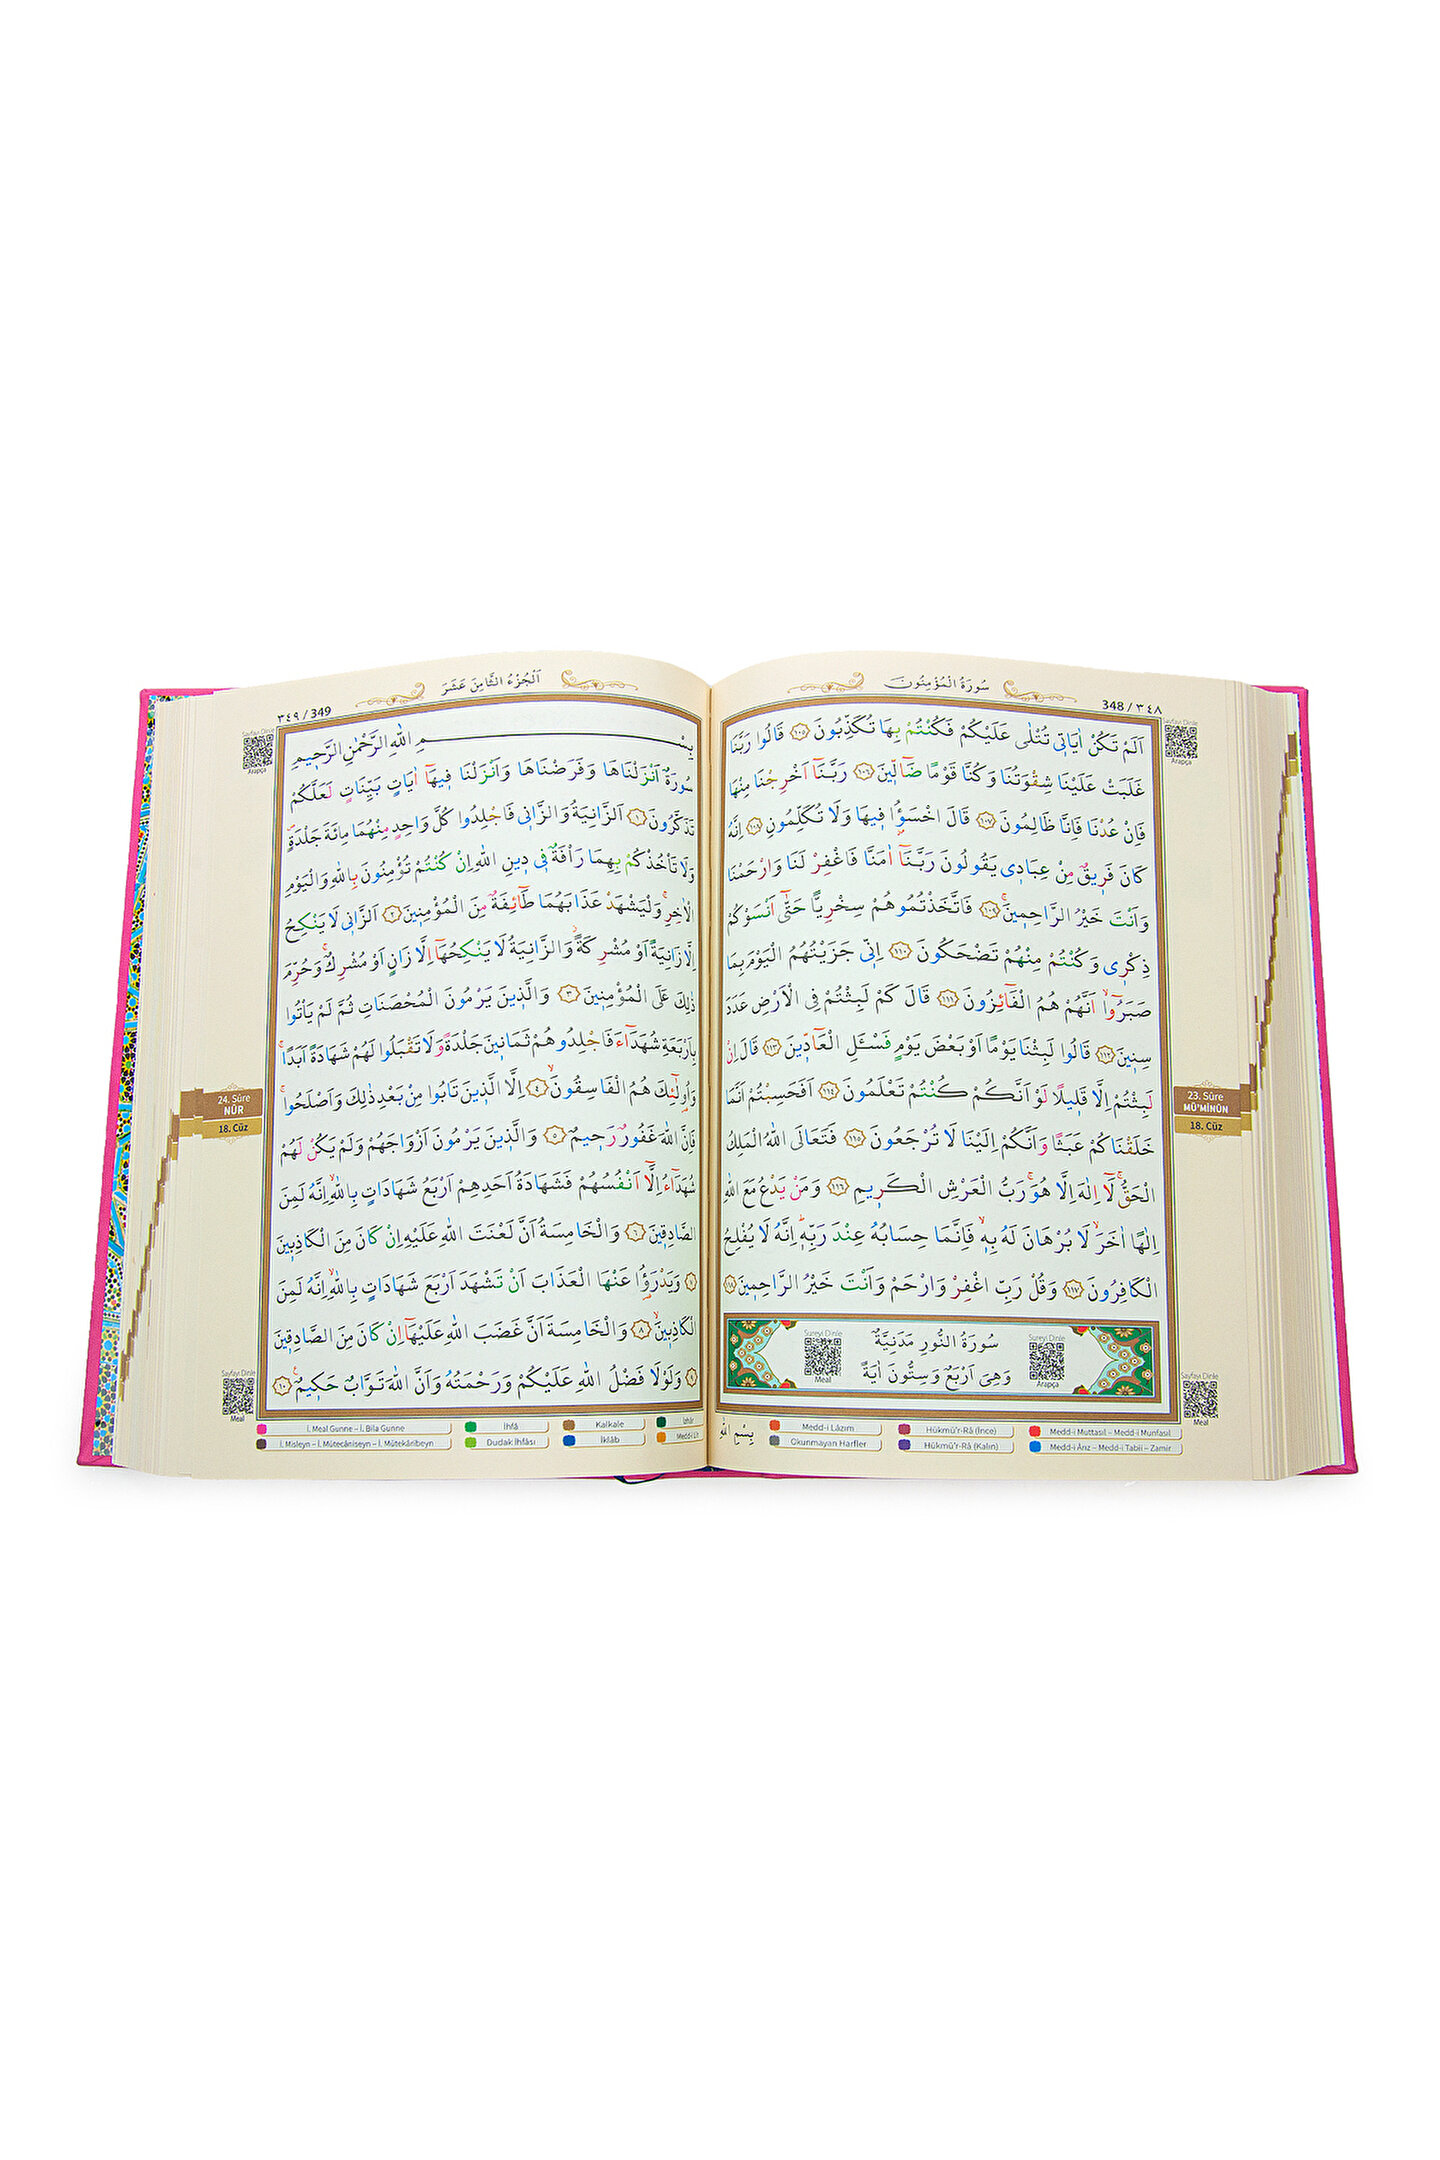 سُورَةُ الْمُؤْمِنُونَ
348 / ٣٤٨
Sayfayı Dinle
Arapça
اَلَمْ تَكُنْ اٰيَاتٖي تُتْلٰى عَلَيْكُمْ فَكُنْتُمْ بِهَا تُكَذِّبُونَ ﴿١٠٥﴾ قَالُوا رَبَّنَا
غَلَبَتْ عَلَيْنَا شِقْوَتُنَا وَكُنَّا قَوْمًا ضَٓالّٖينَ ﴿١٠٦﴾ رَبَّنَٓا اَخْرِجْنَا مِنْهَا
فَاِنْ عُدْنَا فَاِنَّا ظَالِمُونَ ﴿١٠٧﴾ قَالَ اخْسَؤُ۫ا فٖيهَا وَلَا تُكَلِّمُونِ ﴿١٠٨﴾ اِنَّهُ
كَانَ فَرٖيقٌ مِنْ عِبَادٖي يَقُولُونَ رَبَّنَٓا اٰمَنَّا فَاغْفِرْ لَنَا وَارْحَمْنَا
وَاَنْتَ خَيْرُ الرَّاحِمٖينَۚ ﴿١٠٩﴾ فَاتَّخَذْتُمُوهُمْ سِخْرِيًّا حَتّٰٓى اَنْسَوْكُمْ
ذِكْرٖي وَكُنْتُمْ مِنْهُمْ تَضْحَكُونَ ﴿١١٠﴾ اِنّٖي جَزَيْتُهُمُ الْيَوْمَ بِمَا
صَبَرُٓوا اَنَّهُمْ هُمُ الْفَٓائِزُونَ ﴿١١١﴾ قَالَ كَمْ لَبِثْتُمْ فِي الْاَرْضِ عَدَدَ
سِنٖينَ ﴿١١٢﴾ قَالُوا لَبِثْنَا يَوْمًا اَوْ بَعْضَ يَوْمٍ فَسْـَٔلِ الْعَٓادّٖينَ ﴿١١٣﴾ قَالَ اِنْ
لَبِثْتُمْ اِلَّا قَلٖيلًا لَوْ اَنَّكُمْ كُنْتُمْ تَعْلَمُونَ ﴿١١٤﴾ اَفَحَسِبْتُمْ اَنَّمَا
خَلَقْنَاكُمْ عَبَثًا وَاَنَّكُمْ اِلَيْنَا لَا تُرْجَعُونَ ﴿١١٥﴾ فَتَعَالَى اللّٰهُ الْمَلِكُ
الْحَقُّۚ لَٓا اِلٰهَ اِلَّا هُوَۚ رَبُّ الْعَرْشِ الْكَرٖيمِ ﴿١١٦﴾ وَمَنْ يَدْعُ مَعَ اللّٰهِ
اِلٰهًا اٰخَرَۙ لَا بُرْهَانَ لَهُ بِهٖۙ فَاِنَّمَا حِسَابُهُ عِنْدَ رَبِّهٖۜ اِنَّهُ لَا يُفْلِحُ
الْكَافِرُونَ ﴿١١٧﴾ وَقُلْ رَبِّ اغْفِرْ وَارْحَمْ وَاَنْتَ خَيْرُ الرَّاحِمٖينَ ﴿١١٨﴾
23. Sûre
MÜ'MİNÛN
18. Cüz
Sûreyi Dinle
Meal
سُورَةُ النُّورِ مَدَنِيَّةٌ
وَهِيَ اَرْبَعٌ وَسِتُّونَ اٰيَةً
Sûreyi Dinle
Arapça
Sayfayı Dinle
Meal
بِسْمِ اللّٰهِ
Medd-i Lâzım
Hükmü'r-Râ (İnce)
Medd-i Muttasıl – Medd-i Munfasıl
Okunmayan Harfler
Hükmü'r-Râ (Kalın)
Medd-i Ârız – Medd-i Tabiî – Zamir
اَلْجُزْءُ الثَّامِنَ عَشَرَ
٣٤٩ / 349
Sayfayı Dinle
Arapça
بِسْمِ اللّٰهِ الرَّحْمٰنِ الرَّحٖيمِ
سُورَةٌ اَنْزَلْنَاهَا وَفَرَضْنَاهَا وَاَنْزَلْنَا فٖيهَٓا اٰيَاتٍ بَيِّنَاتٍ لَعَلَّكُمْ
تَذَكَّرُونَ ﴿١﴾ اَلزَّانِيَةُ وَالزَّانٖي فَاجْلِدُوا كُلَّ وَاحِدٍ مِنْهُمَا مِائَةَ جَلْدَةٍۖ
وَلَا تَأْخُذْكُمْ بِهِمَا رَأْفَةٌ فٖي دٖينِ اللّٰهِ اِنْ كُنْتُمْ تُؤْمِنُونَ بِاللّٰهِ وَالْيَوْمِ
الْاٰخِرِۚ وَلْيَشْهَدْ عَذَابَهُمَا طَٓائِفَةٌ مِنَ الْمُؤْمِنٖينَ ﴿٢﴾ اَلزَّانٖي لَا يَنْكِحُ
اِلَّا زَانِيَةً اَوْ مُشْرِكَةًۘ وَالزَّانِيَةُ لَا يَنْكِحُهَٓا اِلَّا زَانٍ اَوْ مُشْرِكٌۚ وَحُرِّمَ
ذٰلِكَ عَلَى الْمُؤْمِنٖينَ ﴿٣﴾ وَالَّذٖينَ يَرْمُونَ الْمُحْصَنَاتِ ثُمَّ لَمْ يَأْتُوا
بِاَرْبَعَةِ شُهَدَٓاءَ فَاجْلِدُوهُمْ ثَمَانٖينَ جَلْدَةً وَلَا تَقْبَلُوا لَهُمْ شَهَادَةً اَبَدًاۚ
وَاُولٰٓئِكَ هُمُ الْفَاسِقُونَۙ ﴿٤﴾ اِلَّا الَّذٖينَ تَابُوا مِنْ بَعْدِ ذٰلِكَ وَاَصْلَحُواۚ
فَاِنَّ اللّٰهَ غَفُورٌ رَحٖيمٌ ﴿٥﴾ وَالَّذٖينَ يَرْمُونَ اَزْوَاجَهُمْ وَلَمْ يَكُنْ لَهُمْ
شُهَدَٓاءُ اِلَّٓا اَنْفُسُهُمْ فَشَهَادَةُ اَحَدِهِمْ اَرْبَعُ شَهَادَاتٍ بِاللّٰهِۙ اِنَّهُ لَمِنَ
الصَّادِقٖينَ ﴿٦﴾ وَالْخَامِسَةُ اَنَّ لَعْنَتَ اللّٰهِ عَلَيْهِ اِنْ كَانَ مِنَ الْكَاذِبٖينَ
﴿٧﴾ وَيَدْرَؤُ۬ا عَنْهَا الْعَذَابَ اَنْ تَشْهَدَ اَرْبَعَ شَهَادَاتٍ بِاللّٰهِۙ اِنَّهُ لَمِنَ
الْكَاذِبٖينَۙ ﴿٨﴾ وَالْخَامِسَةَ اَنَّ غَضَبَ اللّٰهِ عَلَيْهَٓا اِنْ كَانَ مِنَ الصَّادِقٖينَ
﴿٩﴾ وَلَوْلَا فَضْلُ اللّٰهِ عَلَيْكُمْ وَرَحْمَتُهُ وَاَنَّ اللّٰهَ تَوَّابٌ حَكٖيمٌ۟ ﴿١٠﴾
24. Sûre
NÛR
18. Cüz
Sayfayı Dinle
Meal
İ. Meal Gunne – İ. Bila Gunne
İhfâ
Kalkale
İzhâr
İ. Misleyn – İ. Mütecâniseyn – İ. Mütekâribeyn
Dudak İhfâsı
İklâb
Medd-i Lîn